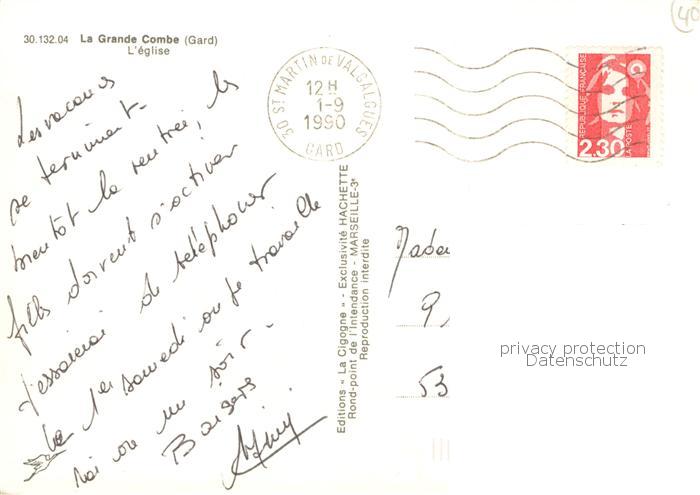 30.132.04 La Grande Combe (Gard)
L'église
30 ST MARTIN DE VALGALGUES
12 H
1-9
1990
GARD
RÉPUBLIQUE FRANÇAISE
2.30
LA POSTE
40
Les vacances
se terminent.
bientôt la rentrée, les
fills doivent s'activer
J'essaierai de téléphoner
le 1er samedi où je travaille
ou un soir.
Baisers
Editions « La Cigogne » - Exclusivité HACHETTE
Rond-point de l'Intendance - MARSEILLE-3e
Reproduction interdite
Mada
9,
53
privacy protection
Datenschutz